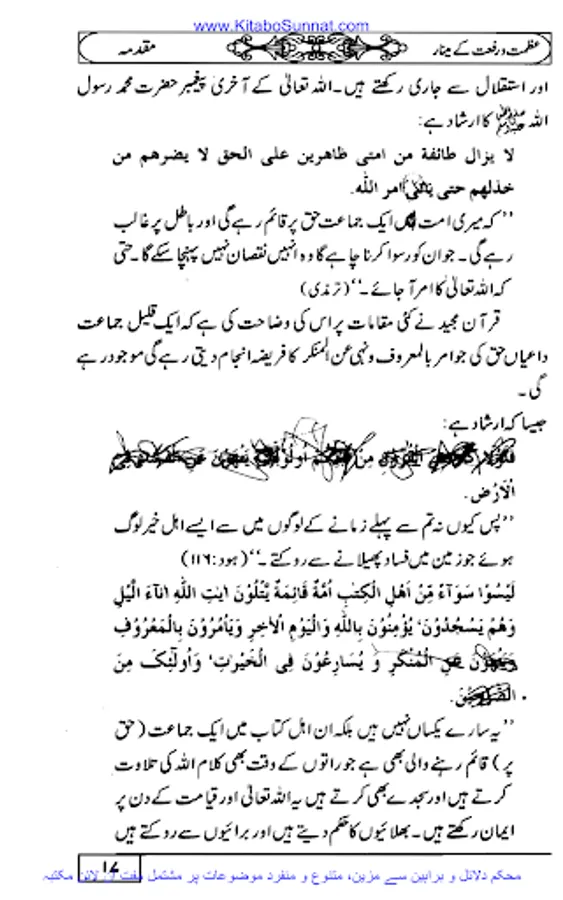 www.KitaboSunnat.com
عظمت و رفعت کے مینار
مقدمہ
اور استقلال سے جاری رکھتے ہیں۔ اللہ تعالیٰ کے آخری پیغمبر حضرت محمد رسول
اللہ ﷺ کا ارشاد ہے:
لا یزال طائفة من امتی ظاهرین علی الحق لا یضرهم من
خذلهم حتی یاتی امر اللّٰه.
’’کہ میری امت میں ایک جماعت حق پر قائم رہے گی اور باطل پر غالب
رہے گی۔ جو ان کو رسوا کرنا چاہے گا وہ انہیں نقصان نہیں پہنچا سکے گا۔ حتی
کہ اللہ تعالیٰ کا امر آ جائے۔‘‘ (ترمذی)
قرآن مجید نے کئی مقامات پر اس کی وضاحت کی ہے کہ ایک قلیل جماعت
داعیاں حق کی جو امر بالمعروف و نہی عن المنکر کا فریضہ انجام دیتی رہے گی موجود رہے
گی۔
جیسا کہ ارشاد ہے:
مِنْ اُولُوْا یَنْهَوْنَ عَنِ
الْاَرْضِ.
’’پس کیوں نہ تم سے پہلے زمانے کے لوگوں میں سے ایسے اہل خیر لوگ
ہوئے جو زمین میں فساد پھیلانے سے روکتے۔‘‘ (ہود:۱۱۶)
لَیْسُوْا سَوَآءً مِّنْ اَهْلِ الْکِتٰبِ اُمَّةٌ قَآئِمَةٌ یَّتْلُوْنَ اٰیٰتِ اللّٰهِ اٰنَآءَ الَّیْلِ
وَهُمْ یَسْجُدُوْنَ، یُؤْمِنُوْنَ بِاللّٰهِ وَالْیَوْمِ الْاٰخِرِ وَیَأْمُرُوْنَ بِالْمَعْرُوْفِ
عَنِ الْمُنْکَرِ وَ یُسَارِعُوْنَ فِی الْخَیْرٰتِ، وَاُولٰٓئِکَ مِنَ
’’یہ سارے یکساں نہیں ہیں بلکہ ان اہل کتاب میں ایک جماعت (حق
پر) قائم رہنے والی بھی ہے جو راتوں کے وقت بھی کلام اللہ کی تلاوت
کرتے ہیں اور سجدے بھی کرتے ہیں یہ اللہ تعالیٰ اور قیامت کے دن پر
ایمان رکھتے ہیں۔ بھلائیوں کا حکم دیتے ہیں اور برائیوں سے روکتے ہیں
۱۷
محکم دلائل و براہین سے مزین، متنوع و منفرد موضوعات پر مشتمل مفت آن لائن مکتبہ